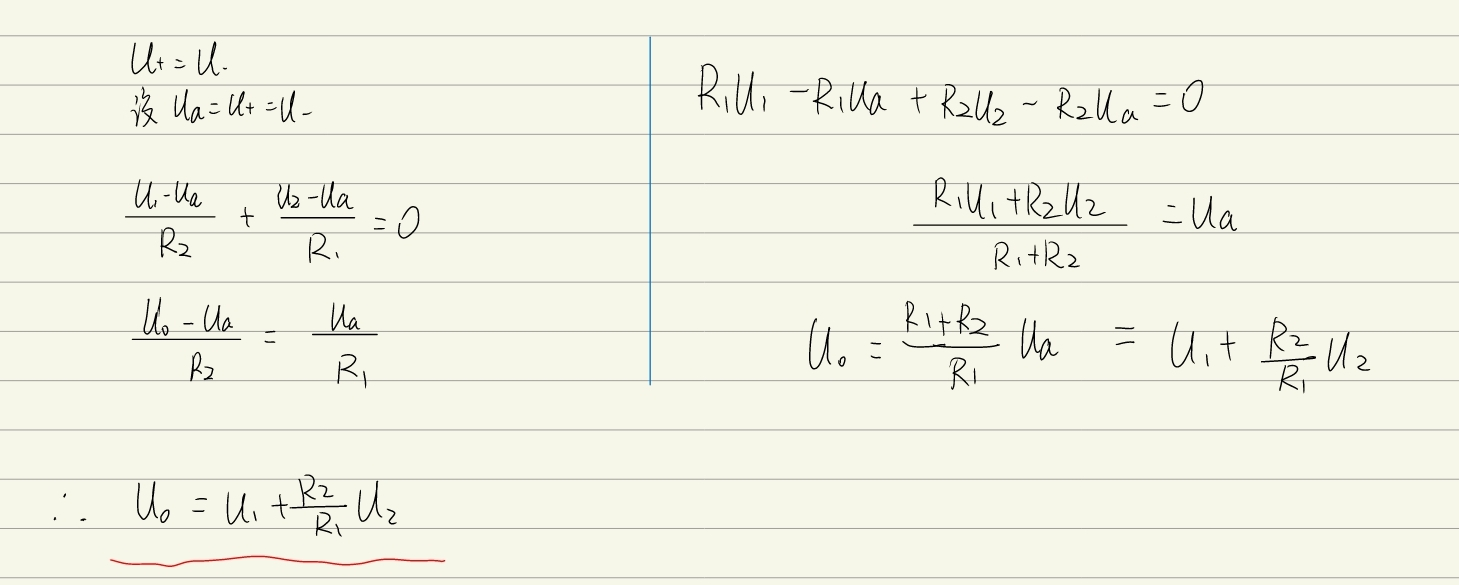 U+ = U-
设 Ua = U+ = U-
(U1 - Ua)/R2 + (U2 - Ua)/R1 = 0
(U0 - Ua)/R2 = Ua/R1
R1U1 - R1Ua + R2U2 - R2Ua = 0
(R1U1 + R2U2)/(R1 + R2) = Ua
U0 = (R1 + R2)/R1 Ua = U1 + R2/R1 U2
∴ U0 = U1 + R2/R1 U2